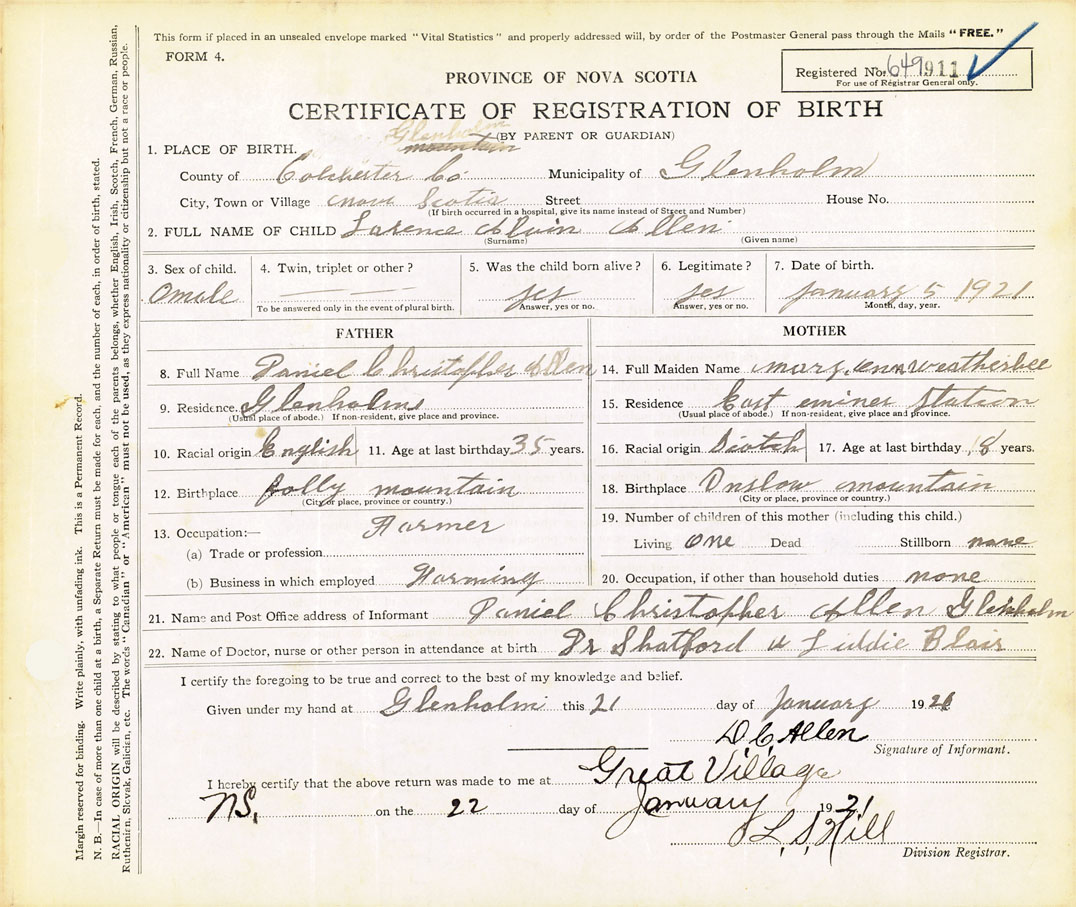 This form if placed in an unsealed envelope marked "Vital Statistics" and properly addressed will, by order of the Postmaster General pass through the Mails "FREE."
FORM 4.
Registered No. 649911
For use of Registrar General only.
PROVINCE OF NOVA SCOTIA
CERTIFICATE OF REGISTRATION OF BIRTH
(BY PARENT OR GUARDIAN)
Glenholm
1. PLACE OF BIRTH. mountain
County of Colchester Co. Municipality of Glenholm
City, Town or Village Nova Scotia Street House No.
(If birth occurred in a hospital, give its name instead of Street and Number)
2. FULL NAME OF CHILD Larence Alvin Allen
(Surname) (Given name)
3. Sex of child. 4. Twin, triplet or other? 5. Was the child born alive? 6. Legitimate? 7. Date of birth.
male yes yes January 5 1921
To be answered only in the event of plural birth. Answer, yes or no. Answer, yes or no. Month, day, year.
FATHER
8. Full Name Daniel Christopher Allen
9. Residence. Glenholm
(Usual place of abode.) If non-resident, give place and province.
10. Racial origin English 11. Age at last birthday 35 years.
12. Birthplace folly mountain
(City or place, province or country.)
13. Occupation:— Farmer
(a) Trade or profession
(b) Business in which employed Farming
MOTHER
14. Full Maiden Name mary ann weatherbee
15. Residence East mines Station
(Usual place of abode.) If non-resident, give place and province.
16. Racial origin Scotch 17. Age at last birthday 18 years.
18. Birthplace Onslow mountain
(City or place, province or country.)
19. Number of children of this mother (including this child.)
Living one Dead Stillborn none
20. Occupation, if other than household duties none
21. Name and Post Office address of Informant Daniel Christopher Allen Glenholm
22. Name of Doctor, nurse or other person in attendance at birth Dr Shatford & Liddie Blair
I certify the foregoing to be true and correct to the best of my knowledge and belief.
Given under my hand at Glenholm this 21 day of January 1921
D. C. Allen
Signature of Informant.
I hereby certify that the above return was made to me at Great Village
NS. on the 22 day of January 1921
L. S. Hill
Division Registrar.
Margin reserved for binding. Write plainly, with unfading ink. This is a Permanent Record.
N. B.—In case of more than one child at a birth, a Separate Return must be made for each, and the number of each, in order of birth, stated.
RACIAL ORIGIN will be described by stating to what people or tongue each of the parents belongs, whether English, Irish, Scotch, French, German, Russian,
Ruthenian, Slovak, Galician, etc. The words "Canadian" or "American" must not be used, as they express nationality or citizenship but not a race or people.